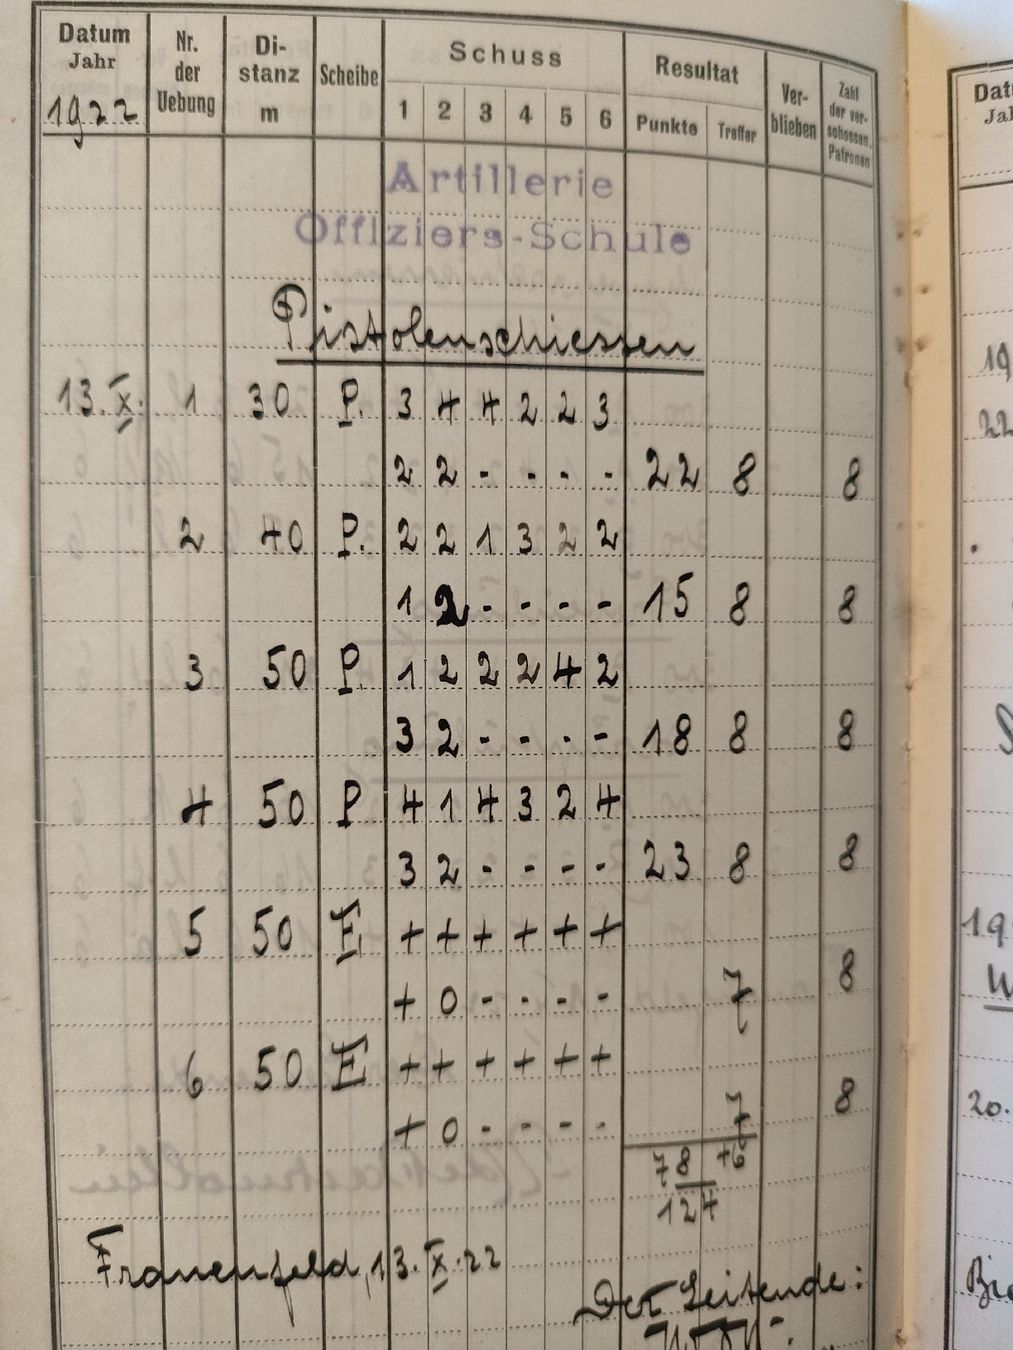 Datum Jahr 1922 Nr. der Uebung Di-stanz m Scheibe Schuss 1 2 3 4 5 6 Resultat Punkte Treffer Ver-blieben Zahl der ver-schossen. Patronen
Artillerie
Offiziers-Schule
Pistolenschiessen
13. IX. 1 30 P. 3 4 4 2 2 3
2 2 - - - - 22 8 8
2 40 P. 2 2 1 3 2 2
1 2 - - - - 15 8 8
3 50 P. 1 2 2 2 4 2
3 2 - - - - 18 8 8
4 50 P 4 1 4 3 2 4
3 2 - - - - 23 8 8
5 50 E + + + + + +
+ 0 - - - - 7 8
6 50 E + + + + + +
+ 0 - - - - 7 8
78 +6
124
Frauenfeld, 13. IX. 22
Der Leitende: